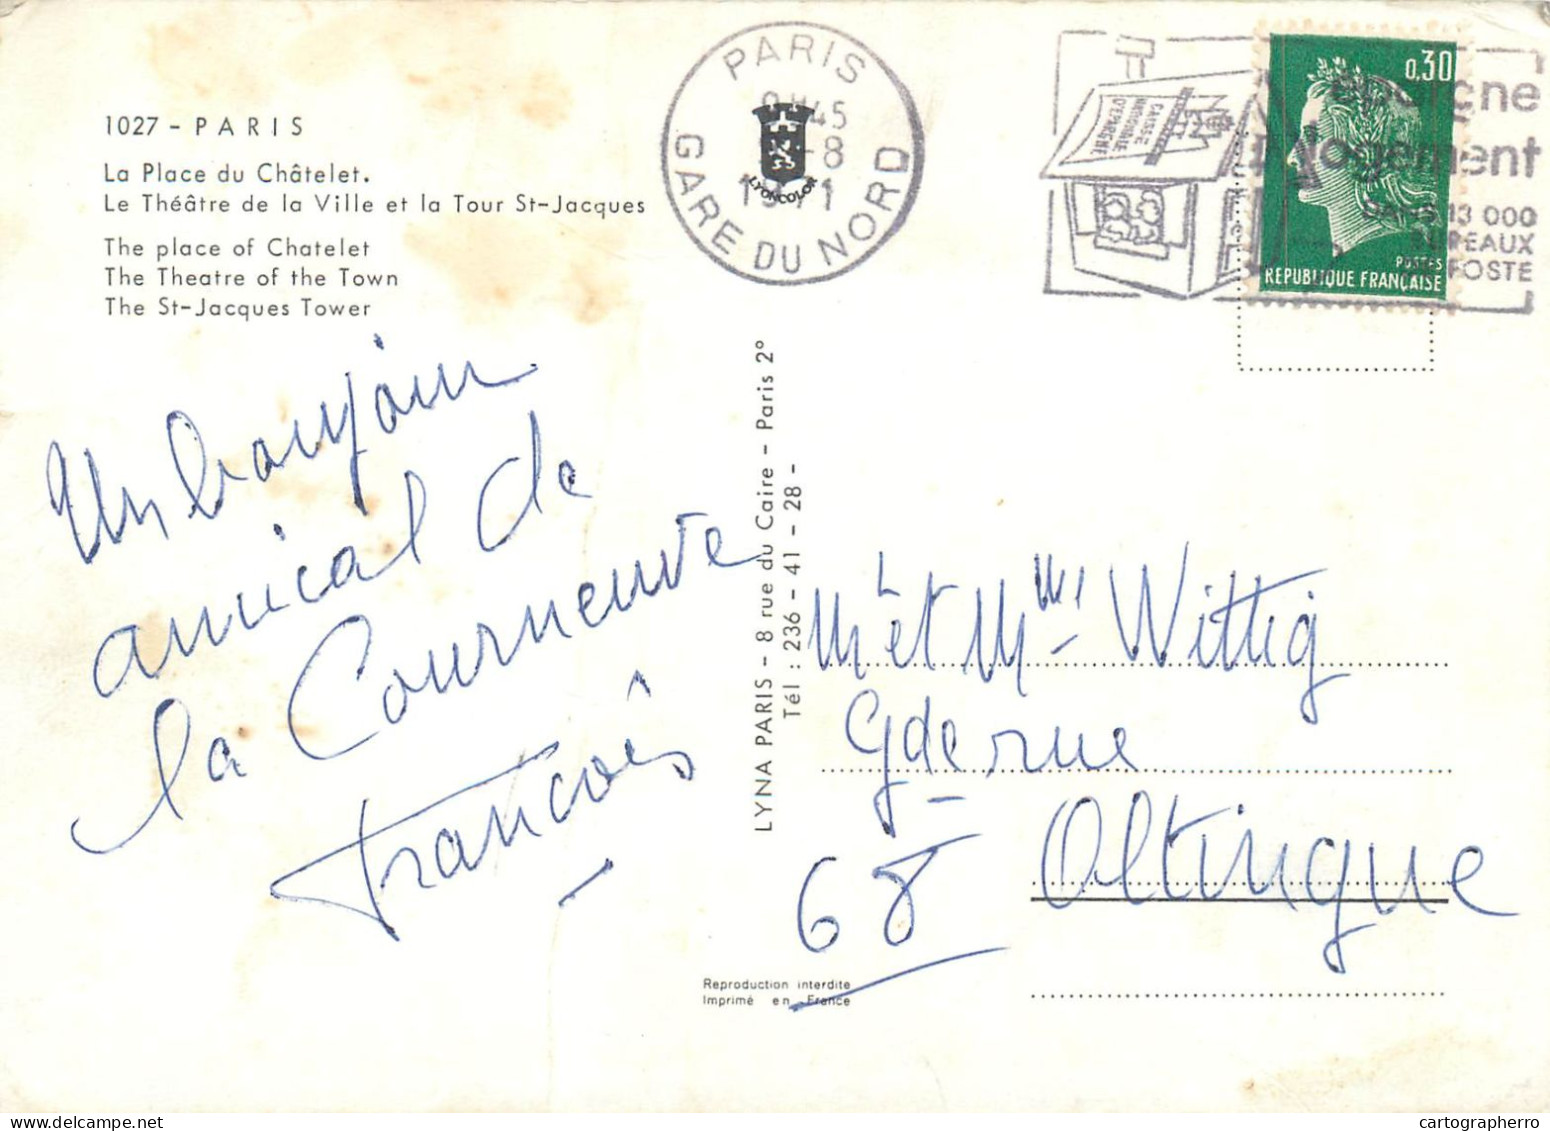 1027 - PARIS
La Place du Châtelet.
Le Théâtre de la Ville et la Tour St-Jacques
The place of Chatelet
The Theatre of the Town
The St-Jacques Tower
PARIS
45
-8
1971
GARE DU NORD
LYONCOLOR
CAISSE
NATIONALE
D'EPARGNE
logement
DANS 13 000
BUREAUX
DE POSTE
0,30
POSTES
REPUBLIQUE FRANÇAISE
Un bonjour
amical de
la Courneuve
François
LYNA PARIS - 8 rue du Caire - Paris 2°
Tél : 236 - 41 - 28 -
Mr et Mme Wittig
Gde rue
68 Oltingue
Reproduction interdite
Imprimé en France
cartographerro